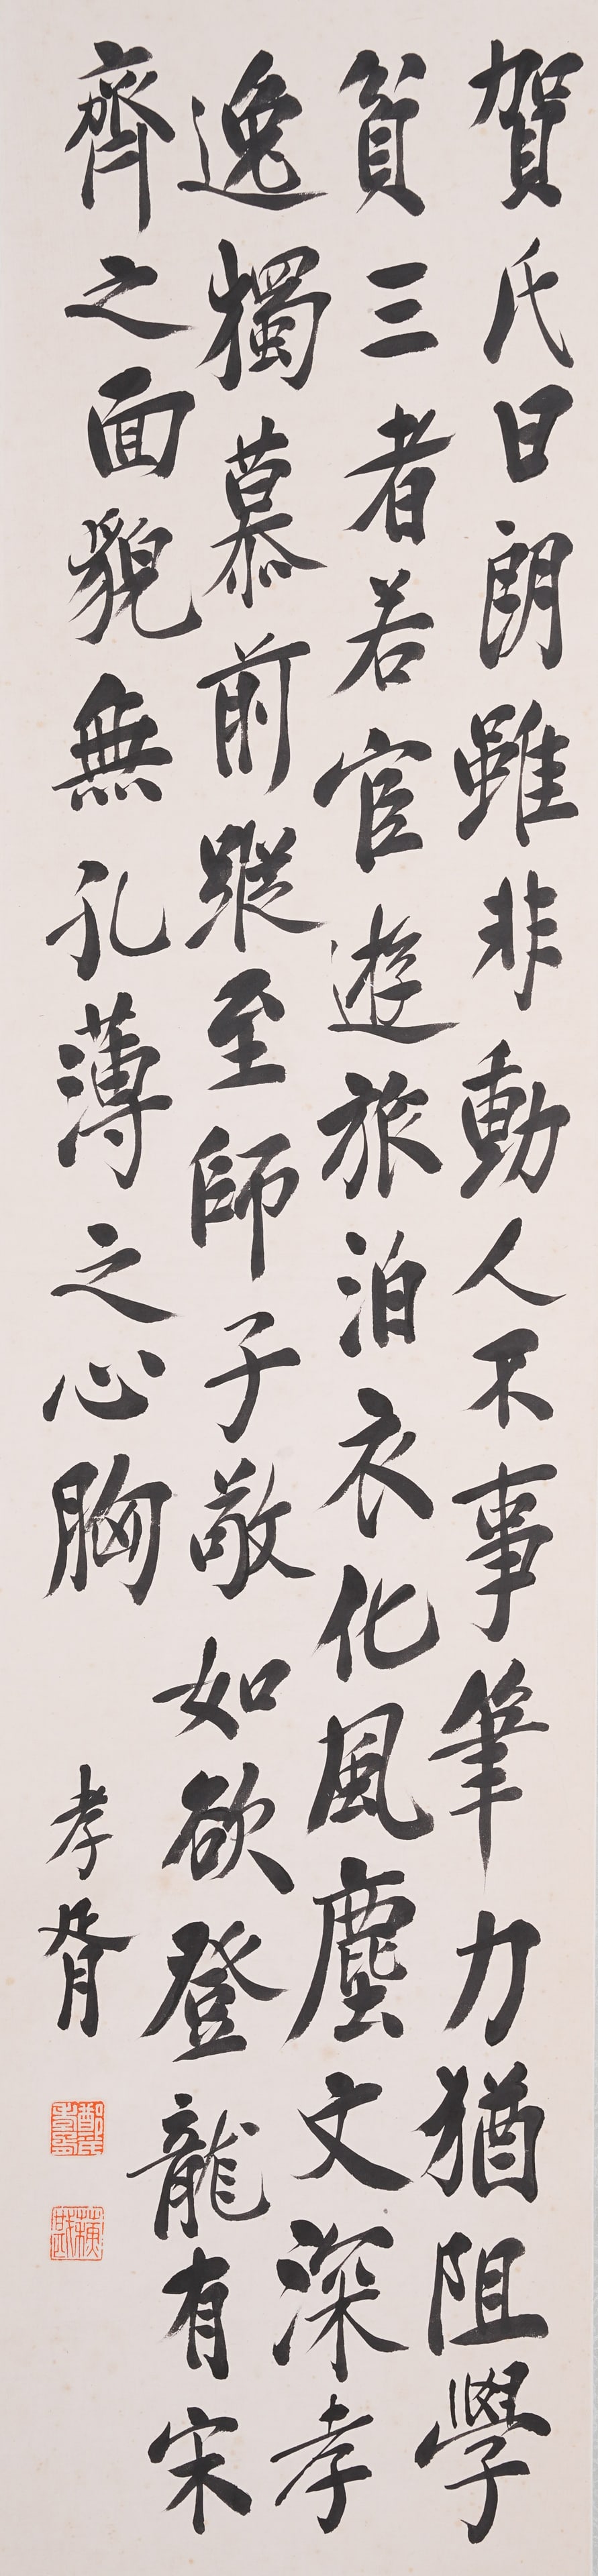 賀氏日朗雖非動人不事筆力猶阻學
貧三者若宦遊旅泊衣化風塵文深孝
逸獨慕前蹤至師子敬如欲登龍有宋
齊之面貌無孔薄之心胸
孝胥
蘇戡